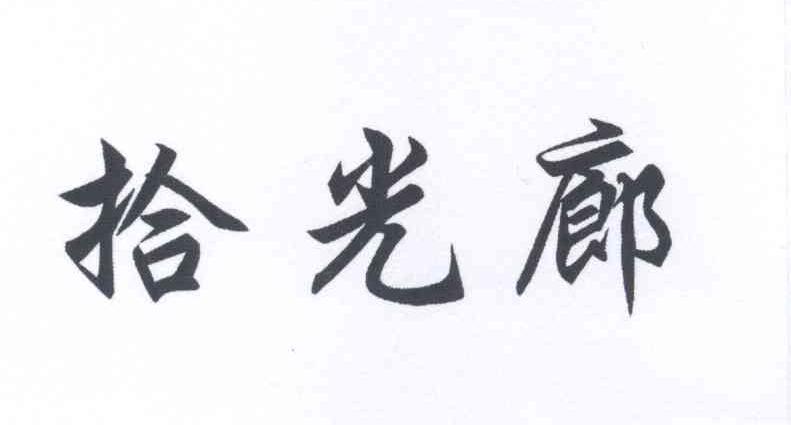 拾光廊